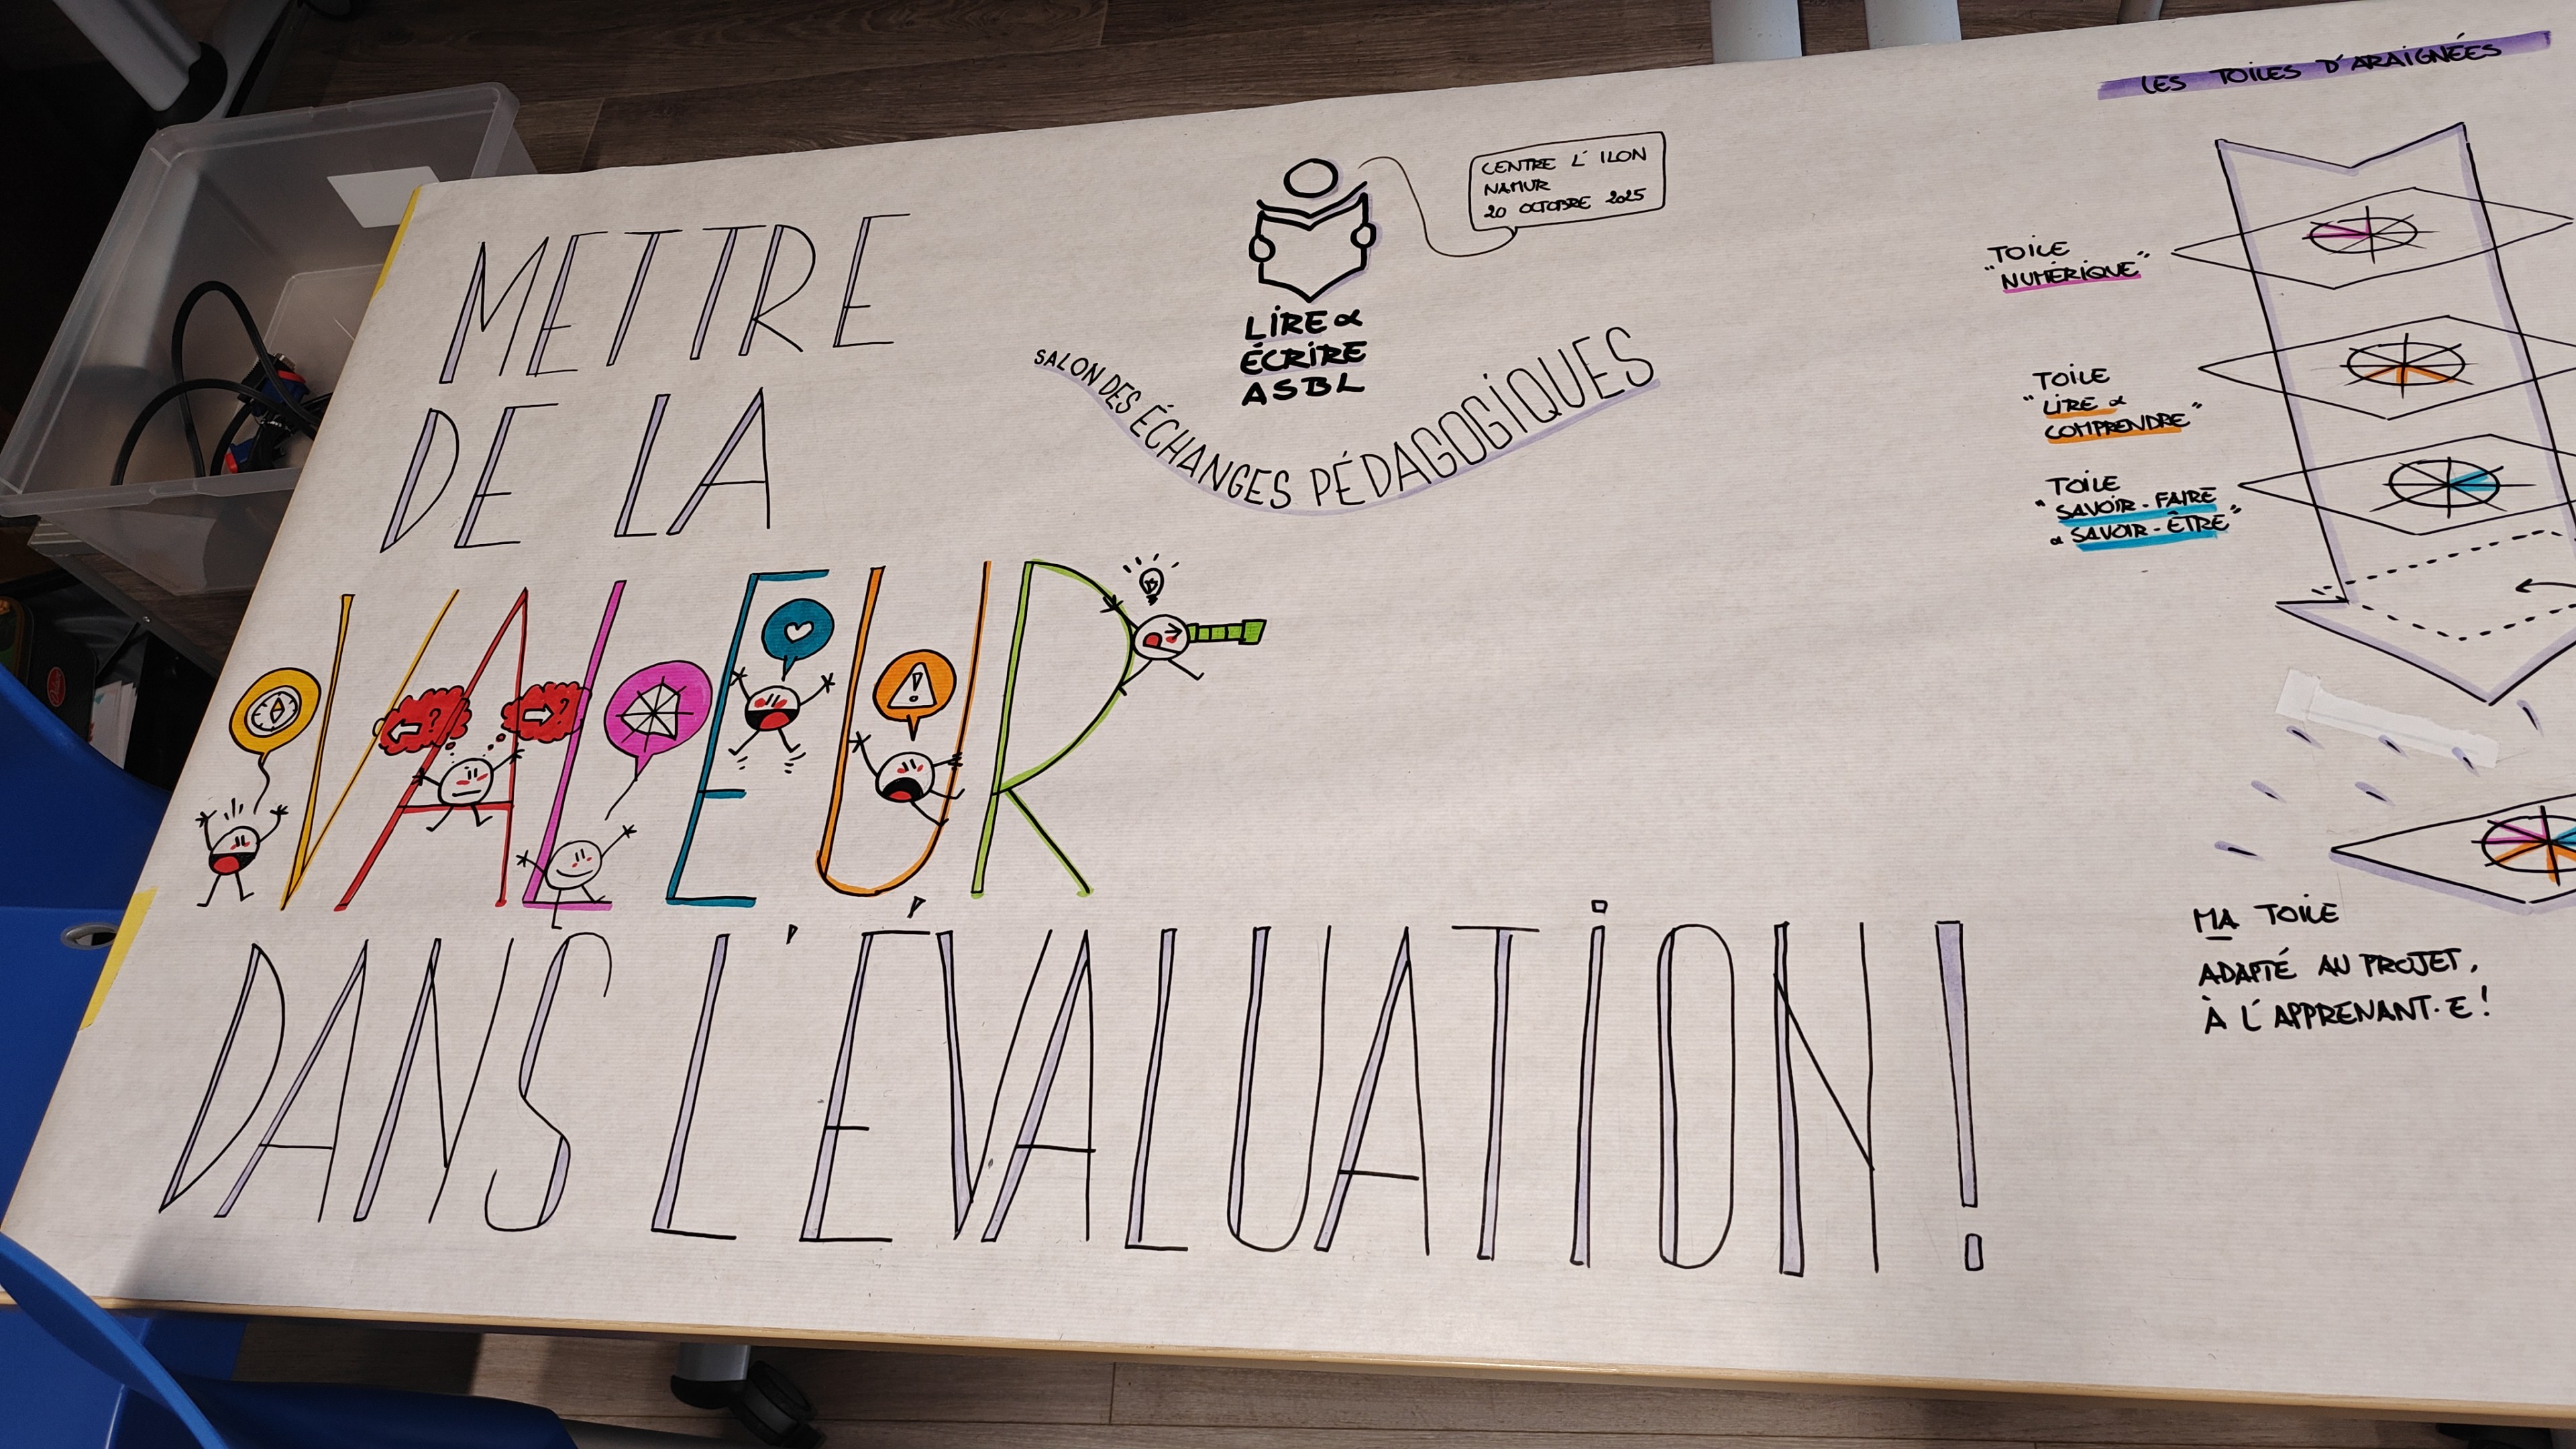 METTRE
DE LA
VALEUR
DANS L'ÉVALUATION!
CENTRE L'ILON
NAMUR
20 OCTOBRE 2025
LIRE &
ÉCRIRE
ASBL
SALON DES ÉCHANGES PÉDAGOGIQUES
LES TOILES D'ARAIGNÉES
TOILE
"NUMÉRIQUE"
TOILE
"LIRE &
COMPRENDRE"
TOILE
"SAVOIR-FAIRE
& SAVOIR-ÊTRE"
MA TOILE
ADAPTÉ AU PROJET,
À L'APPRENANT·E!